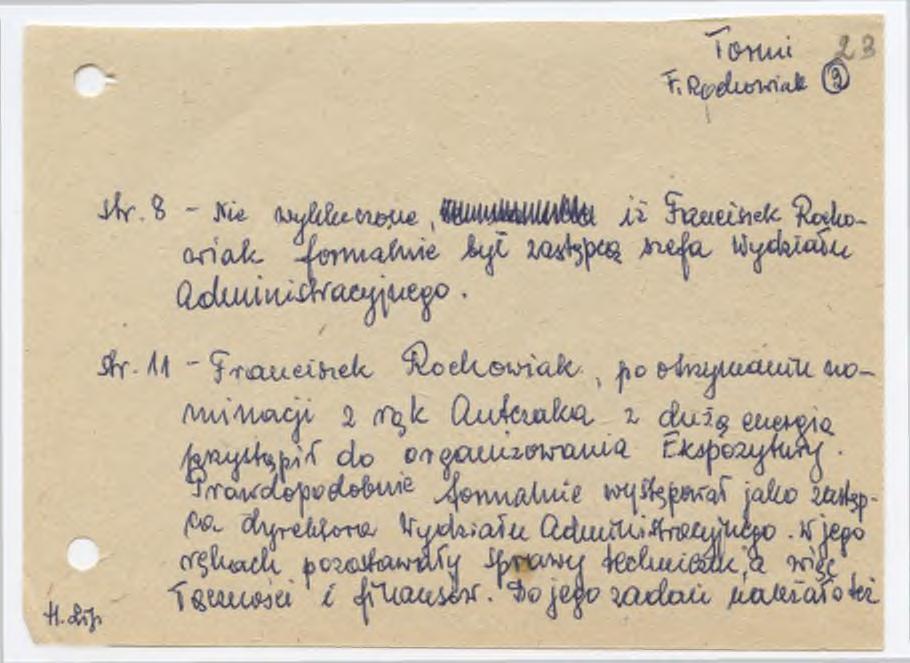 Toruń 23
F. Rochowiak 2
str. 8 - Nie wykluczone, iż Franciszek Rocho-
wiak formalnie był zastępcą szefa Wydziału
Administracyjnego.
str. 11 - Franciszek Rochowiak, po otrzymaniu no-
minacji z rąk Antczaka z dużą energią
przystąpił do organizowania Ekspozytury.
Prawdopodobnie formalnie występował jako zastęp-
ca dyrektora Wydziału Administracyjnego. W jego
rękach pozostawały sprawy techniczne, a więc
łączności i finansów. Do jego zadań należało też